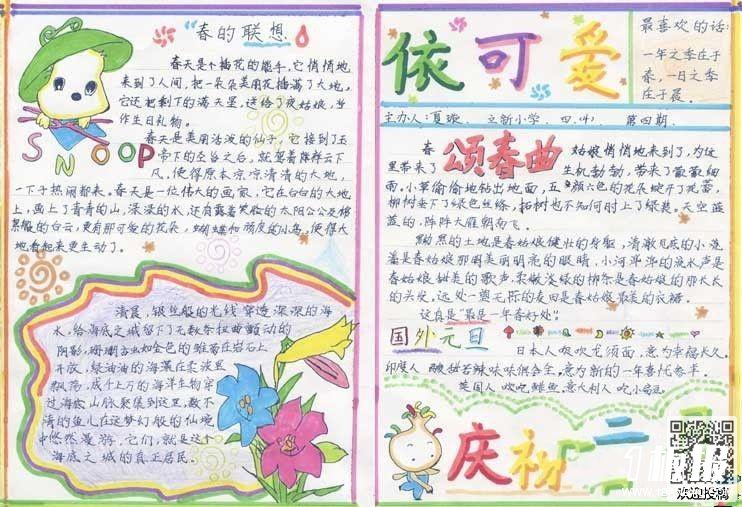 "春的联想"
春天是个插花的能手,它悄悄地
来到了人间,把一朵朵美丽花插满了大地。
它还把剩下的满天星,送给了夜姑娘,当
作生日礼物。
春天是美丽活泼的仙子,它接到玉
帝下的圣旨之后,就驾着降祥云下
凡,使得原本凉凉清清的大地,
一下子热闹起来。春天是一位伟大的画家,它在白白的大地
上,画上了青青的山,深深的水,还有露着笑脸的太阳公公及
的白云,更有那可爱的花朵,蝴蝶和顽皮的小鸟,使得大
地看起来更生动了。
SNOOP
清晨,银丝般的光线穿透深深的海
水,给海底之城留下了无数条扭曲颤动的
阴影,珊瑚方如金色的雏菊在岩石上
开放,绿油油的海藻在柔波里
飘荡,成千上万的海洋生物穿
过海底山脉聚集到这里,数不
清的鱼儿在这梦幻般的仙境
中悠然漫游,它们,就是这个
海底之城的真正居民。
依可爱
最喜欢的话:
一年之季在于
春,一日之季
在于晨。
主办人:夏璇 立新小学 四.(4) 第四期.
颂春曲
春姑娘悄悄地来到了,为这
里带来了生机勃勃,带来了微微细
雨。小草偷偷地钻出地面,五颜六色的花朵绽开了花蕾,
柳树垂下了绿色丝绦,柘树也不知何时上了绿装。天空蓝
蓝的,阵阵大雁朝南飞。
黝黑的土地是春姑娘健壮的身躯,清澈见底的小流
潘是春姑娘那明美丽明亮的眼睛,小河潺潺的流水声是
春姑娘甜美的歌声,柔嫩淡绿的柳条是春姑娘的那长长
的头发,远处一望无际的麦田是春姑娘最美的衣裙。
这真是"最是一年春好处"!
国外元旦
日本人喜欢吃龙须面,意为幸福长久。
印度人 酸甜苦辣味味俱会全,意为新的一年喜忧参半。
英国人 欢吃鲱鱼,意大利人 吃小扁豆。
庆祝
欢迎投稿